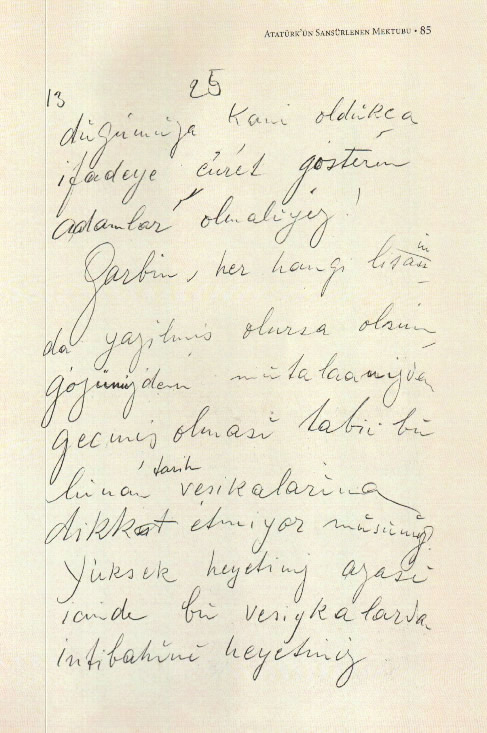 ATATÜRK'ÜN SANSÜRLENEN MEKTUBU • 85
25
13
düğümüza Kani oldukca
ifadeye cür'et gösterin
adamlar olmaliyiz!
Garbin, her hangi lisanin
da yazilmis olursa olsun
gözünüzden mütalaanizdan
gecmis olmasi tabii bu
lunan tarih vesikalarina
dikkat etmiyor müsünüz?
Yüksek heyetiniz azasi
icinde bu vesiykalarda
intibahini heyetiniz